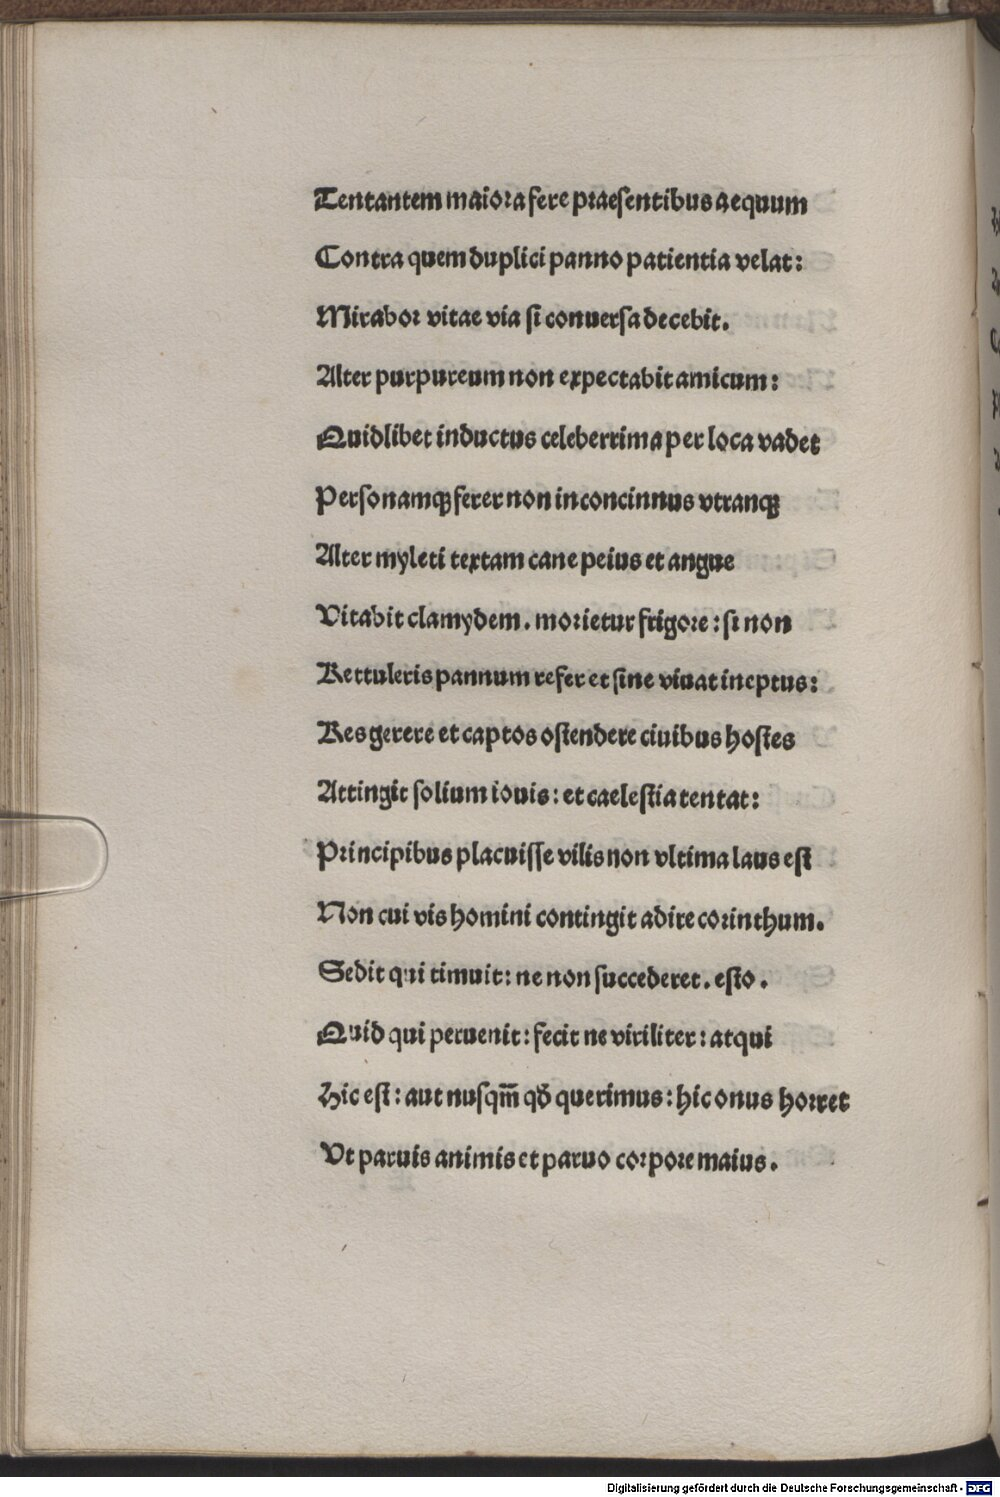 Tentantem maiora fere praesentibus aequum
Contra quem duplici panno patientia velat:
Mirabor vitae via si conuersa decebit.
Alter purpureum non expectabit amicum:
Quidlibet inductus celeberrima per loca vadet
Personamqꝫ feret non inconcinnus vtranqꝫ
Alter myleti textam cane peius et angue
Vitabit clamydem. morietur frigore: si non
Rettuleris pannum refer et sine viuat ineptus:
Res gerere et captos ostendere ciuibus hostes
Attingit solium iouis: et caelestia tentat:
Principibus placuisse vilis non vltima laus est
Non cui vis homini contingit adire corinthum.
Sedit qui timuit: ne non succederet. esto.
Quid qui peruenit: fecit ne viriliter: atqui
Hic est: aut nusqm̄ qđ querimus: hic onus horret
Vt paruis animis et paruo corpore maius.
Digitalisierung gefördert durch die Deutsche Forschungsgemeinschaft - DFG